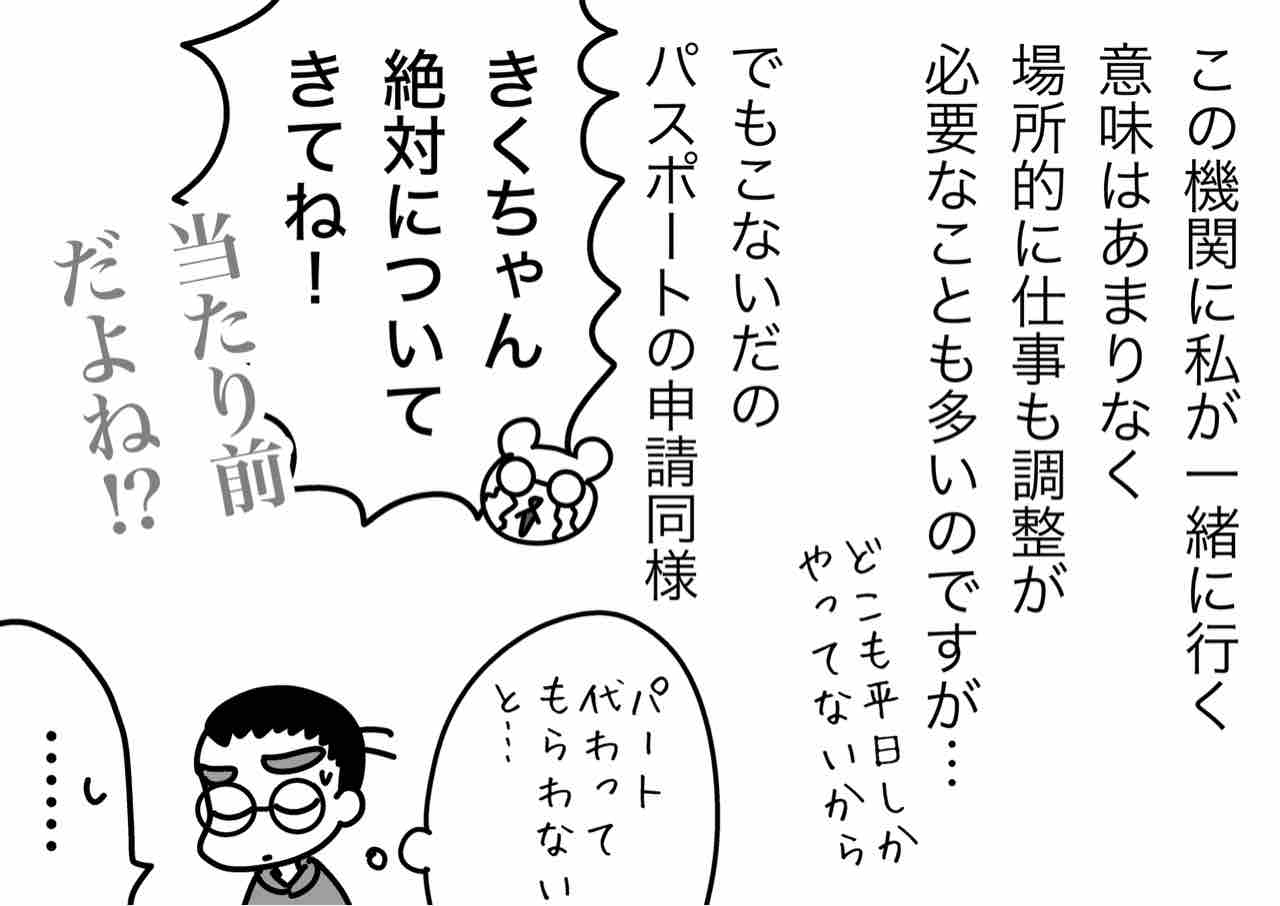 この機関に私が一緒に行く
意味はあまりなく
場所的に仕事も調整が
必要なことも多いのですが…
どこも平日しか
やってないから
でもこないだの
パスポートの申請同様
きくちゃん
絶対について
きてね！
当たり前
だよね!?
パート
代わって
もらわない
と…
……